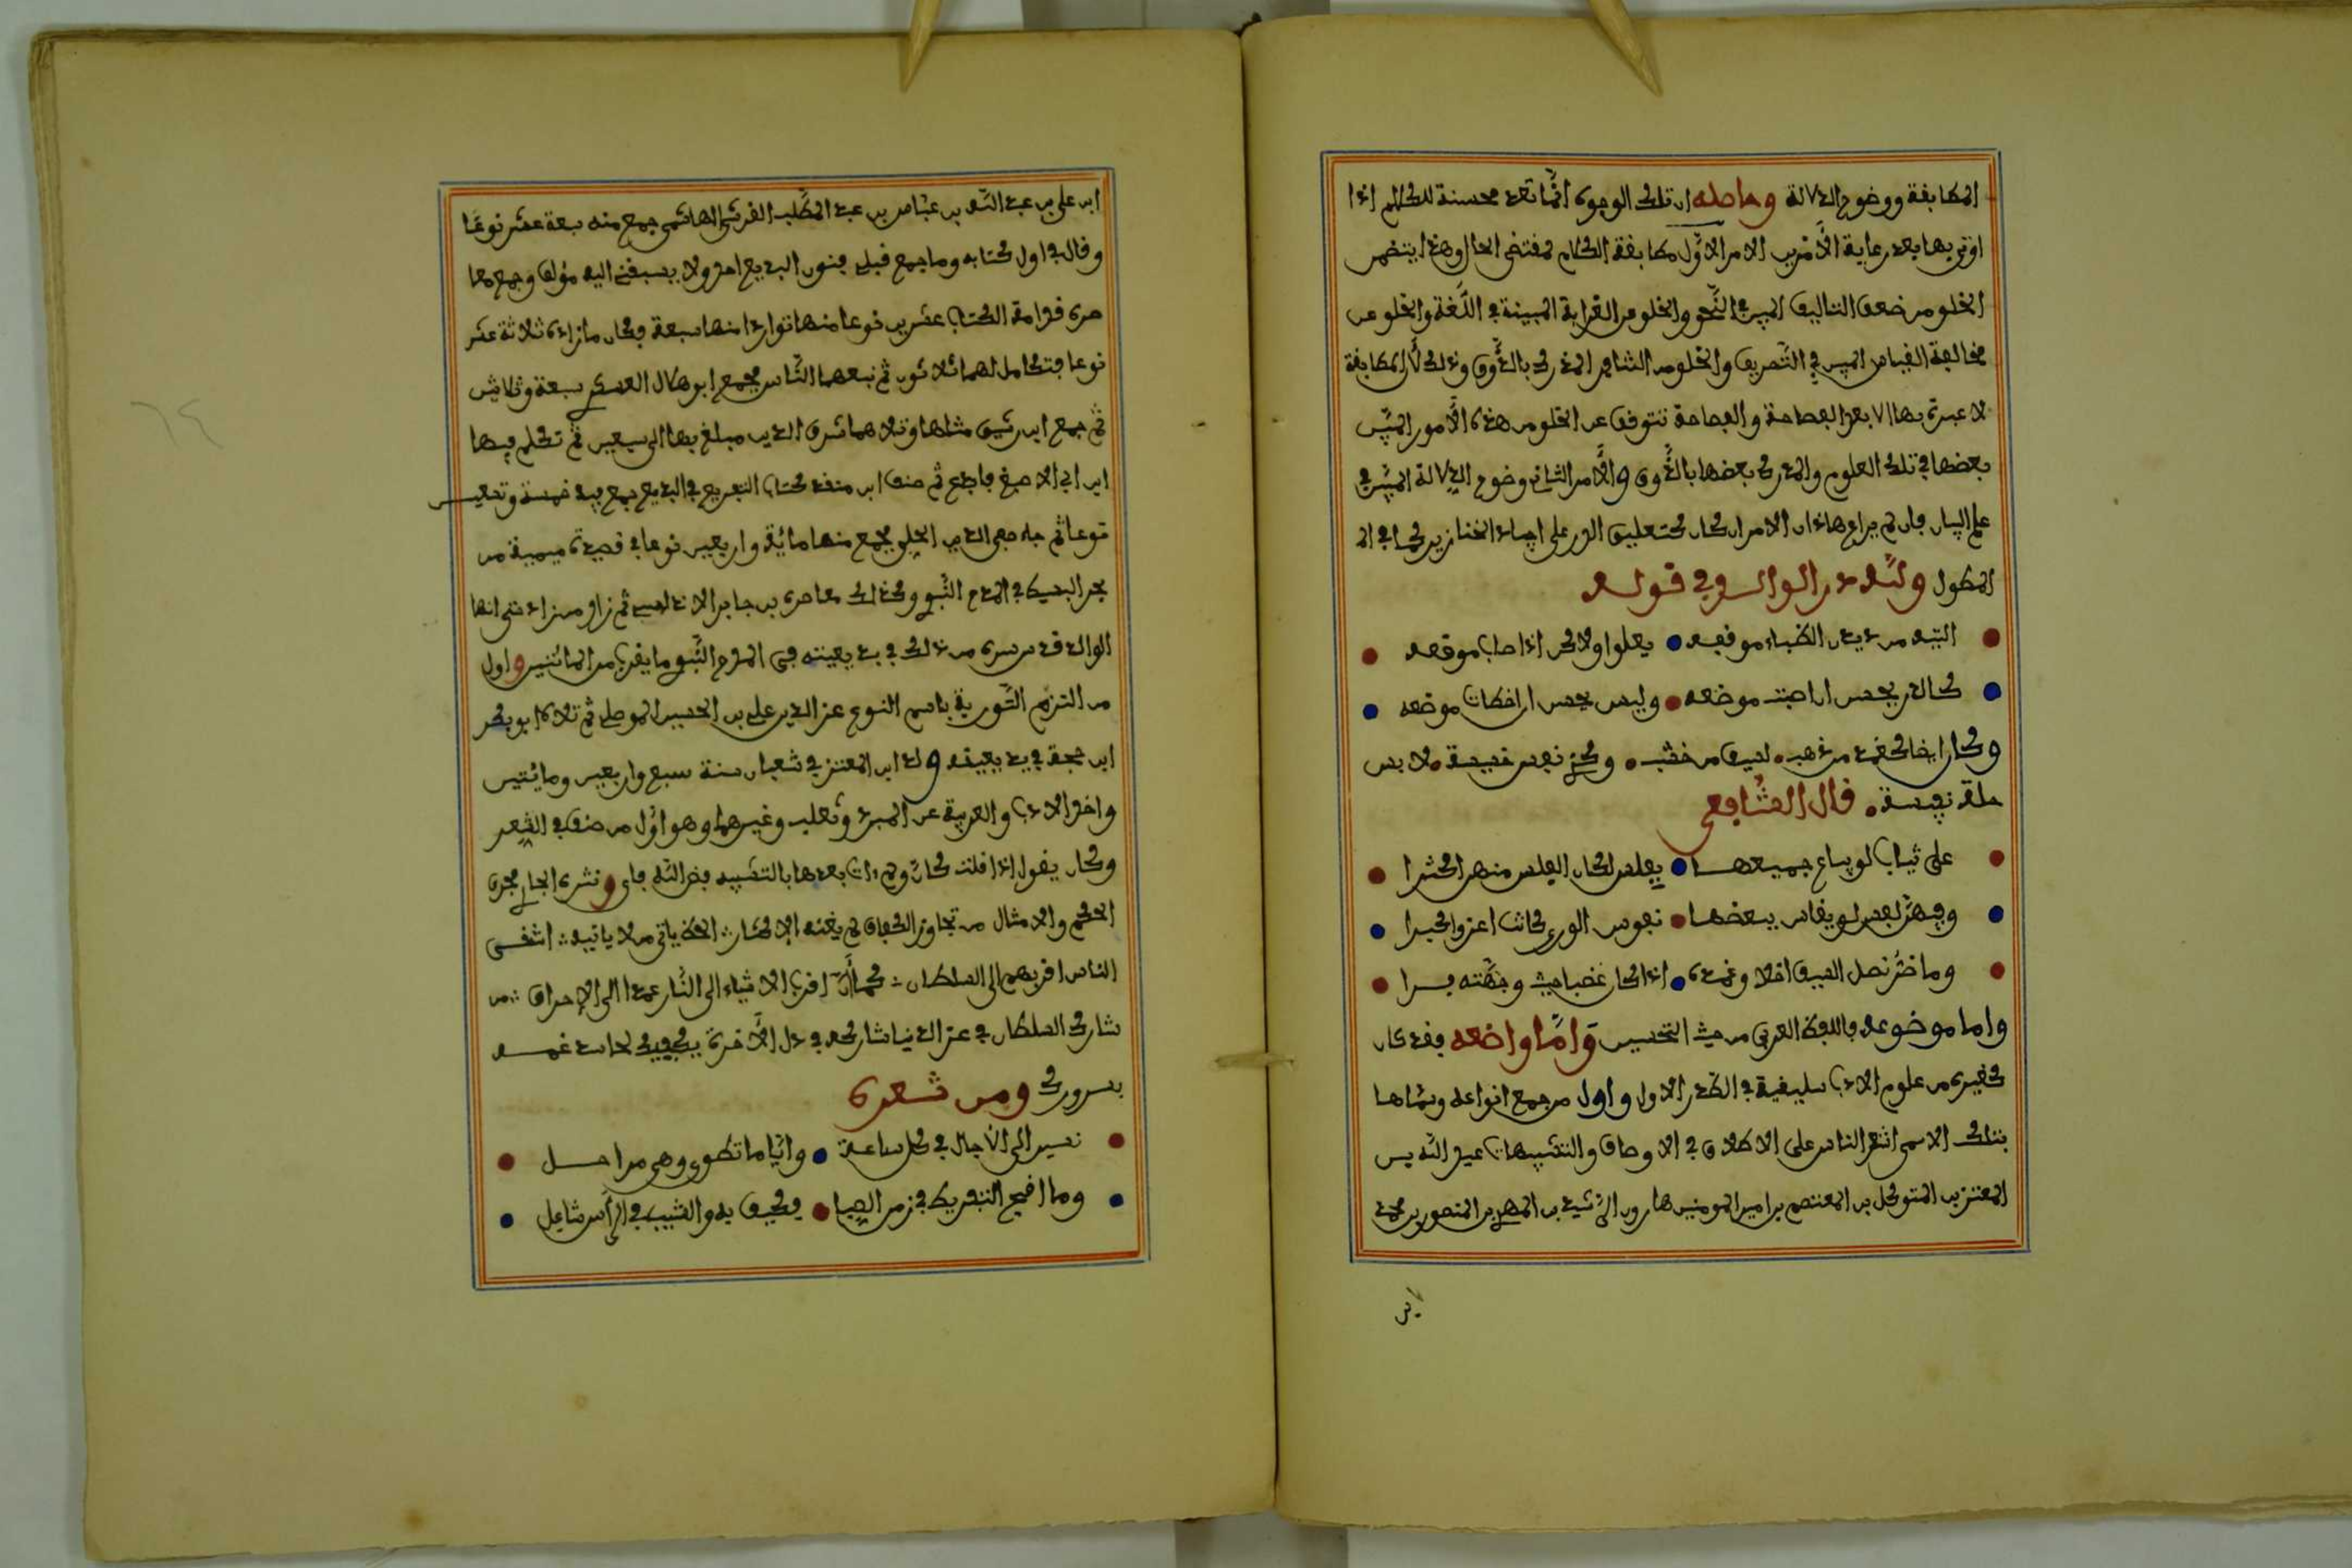 المطابقة ووضوح الدلالة وحاصله ان تلك الوجوه انما تعد محسنة للكلام اذا
اوتي بها بعد رعاية الأمرين الامر الاول مطابقة الكلام لمقتضى الحال وهذا يتضمن
الخلو من ضعف التاليف المبين في النحو والخلو من الغرابة المبينة في اللغة والخلو عن
مخالفة القياس المبين في التصريف والخلو من التنافر المدرك بالذوق وذلك لأن المطابقة
لا عبرة بها الا بعد الفصاحة والفصاحة تتوقف عن الخلو من هذه الأمور المبين
بعضها في تلك العلوم والمدرك بعضها بالذوق والأمر الثاني وضوح الدلالة المبين في
علم البيان فان لم يراع هذان الامران كان كتعليق الدر على اجياد الخنازير كما في الـ
المطول ولله در الوالد في قوله
التيه من ديدن الظباء موقعه يعلوا ولاكن اذا صاب موقعه
كالدر يحسن ان اصبت موضعه وليس يحسن ان اخطات موضعه
وكان ايضا كغمد من ذهب لسيف من خشب وكذي نفس خسيسة لابس
حلة نفيسة قال الشافعي
على ثياب لو يباع جميعها بفلس لكان الفلس منهن اكثرا
وفيهن نفس لو يقاس ببعضها نفوس الورى كانت اعز واكبرا
وما ضر نصل السيف اخلاق غمده اذا كان غضبا حيث وجهته برا
واما موضوعه فاللفظ العربي من حيث التحسين واما واضعه فقد كان
كغيره من علوم الادب سليقية في الصدر الاول واول من جمع انواعه وسماها
بتلك الاسمى اشعر الناس على الاطلاق في الاوصاف والتشبيهات عبد الله بن
المعتز بن المتوكل بن المعتصم بن امير المومنين هارون الرشيد بن المهدي بن المنصور بن محمد
ابن علي بن عبد الله بن عباس بن عبد المطلب القرشي الهاشمي جمع منه سبعة عشر نوعا
وقال في اول كتابه وما جمع قبلي فنون البديع احد ولا يسبقني اليه مؤلف وجمع معا
صره قدامة الكتاب عشرين نوعا منها تواردا منها سبعة فكان ما زاده ثلاثة عشر
نوعا فتكامل لهما ثلاثون ثم تبعهما الناس فجمع ابو هلال العسكري سبعة وثلاثين
ثم جمع ابن رشيق مثلها وتلاهما شرف الدين فبلغ بها الى سبعين ثم تكلم فيها
ابن ابي الاصبغ فابدع ثم صنف ابن منقذ كتاب التفريع في البديع جمع فيه خمسة وتسعين
نوعا ثم جاء صفي الدين الحلي فجمع منها مائة واربعين نوعا في قصيدة ميمية من
بحر البسيط في المدح النبوي وكذلك معاصره بن جابر الاندلسي ثم زاد من زاد حتى انها
الوالد قدس سره من ذلك في بديعيته في المدح النبوي ما يقرب من المائتين واول
من التزم التورية باسم النوع عز الدين علي بن الحسين الموصلي ثم تلاه ابو بكر
ابن حجة في بديعيته ولد ابن المعتز في شعبان سنة سبع واربعين ومائتين
واخذ الادب والعربية عن المبرد وثعلب وغيرهما وهو اول من صنف في الشعر
وكان يقول اذا قلت كان ولم ات بعدها بالتشبيه فض الله فاي ونثره الجاري مجرى
الحكم والامثال من تجاوز الكفاف لم يغنه الاكثار الحظ ياتي من لا ياتيه اشقى
الناس اقربهم الى السلطان كما أن اقرب الاشياء الى النار عمدا الى الاحراق من
شارك السلطان في عز الدنيا شاركه في ذل الأخرة يكفيك لحاسد غمه
بسرورك ومن شعره
نسير الى الأجال في كل ساعة وايامنا تطوى وهي مراحل
وما اقبح التفريط في زمن الصبا فكيف به والشيب في الرأس شاعل